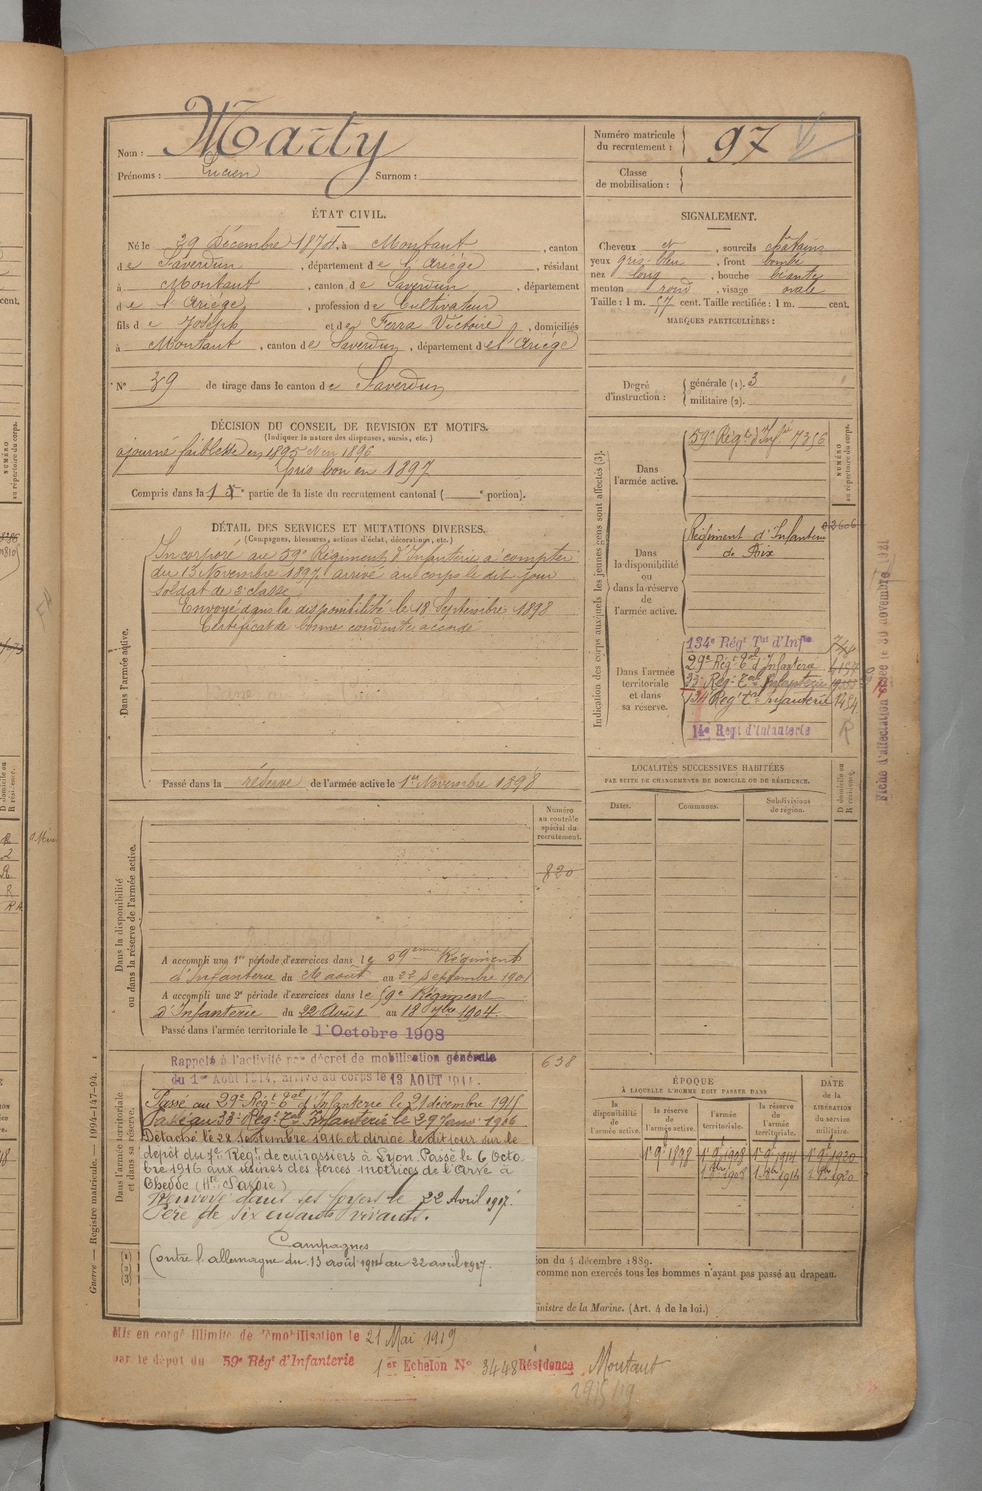 Nom : Marty
Prénoms : Lucien Surnom :
Numéro matricule
du recrutement : 97
Classe
de mobilisation :
ÉTAT CIVIL.
Né le 29 Décembre 1874, à Montaut, canton
de Saverdun, département de l'Ariège, résidant
à Montaut, canton de Saverdun, département
de l'Ariège, profession de Cultivateur
fils de Joseph et de Ferra Victoire, domiciliés
à Montaut, canton de Saverdun, département de l'Ariège
N° 39 de tirage dans le canton de Saverdun
SIGNALEMENT.
Cheveux et sourcils châtains
yeux gris-bleu, front bombé
nez long, bouche béante
menton rond, visage ovale
Taille : 1 m. 57 cent. Taille rectifiée : 1 m. cent.
MARQUES PARTICULIÈRES :
Degré
d'instruction :
générale (1). 3
militaire (2).
DÉCISION DU CONSEIL DE REVISION ET MOTIFS.
(Indiquer la nature des dispenses, sursis, etc.)
ajourné faiblesse en 1895 et en 1896
Pris bon en 1897
Compris dans la 1e partie de la liste du recrutement cantonal ( e portion).
DÉTAIL DES SERVICES ET MUTATIONS DIVERSES.
(Campagnes, blessures, actions d'éclat, décorations, etc.)
Dans l'armée active.
Incorporé au 59e Régiment d'Infanterie à compter
du 13 Novembre 1897. arrivé au corps le dit jour
Soldat de 2e classe
Envoyé dans la disponibilité le 18 Septembre 1898
Certificat de bonne conduite accordé
Passé dans la réserve de l'armée active le 1er Novembre 1898
Indication des corps auxquels les jeunes gens sont affectés (3).
NUMÉRO
au répertoire du corps.
Dans
l'armée active.
59e Régt d'Infie 7356
Dans
la disponibilité
ou
dans la réserve
de
l'armée active.
Régiment d'Infanterie
de Foix
Dans l'armée
territoriale
et dans
sa réserve.
134e Régt Tal d'Infie
29e Régt Tal d'Infanterie
33e Régt Tal Infanterie
134 Régt Tal Infanterie 1454
14e Régt d'Infanterie
R
Fiche d'affectation créée le 30 novembre 1921
LOCALITÉS SUCCESSIVES HABITÉES
PAR SUITE DE CHANGEMENTS DE DOMICILE OU DE RÉSIDENCE.
Dates. Communes. Subdivisions
de région.
D domicile ou
R résidence.
Numéro
au contrôle
spécial du
recrutement.
820
Dans la disponibilité
ou dans la réserve de l'armée active.
A accompli une 1re période d'exercices dans le 59eme Régiment
d'Infanterie du 26 août au 22 Septembre 1901
A accompli une 2e période d'exercices dans le 59e Régiment
d'Infanterie du 22 Août au 18 7bre 1904.
Passé dans l'armée territoriale le 1er Octobre 1908
638
Dans l'armée territoriale
et dans sa réserve.
Rappelé à l'activité par décret de mobilisation générale
du 1er Août 1914, arrivé au corps le 13 AOUT 1914.
Passé au 29e Régt Tal d'Infanterie le 21 décembre 1915
Passé au 33e Régt Tal Infanterie le 29 Janv. 1916
Détaché le 28 septembre 1916 et dirigé le dit jour sur le
dépôt du 7e Régt de cuirassiers à Lyon. Passé le 6 Octo
bre 1916 aux usines des forces motrices de l'Arve à
Chedde (Hte Savoie)
Renvoyé dans ses foyers le 22 Avril 1917.
Père de six enfants vivants.
Campagnes
Contre l'allemagne du 13 août 1914 au 22 avril 1917.
ÉPOQUE
À LAQUELLE L'HOMME DOIT PASSER DANS
la
disponibilité
de
l'armée active.
la réserve
de
l'armée active.
l'armée
territoriale.
la réserve
de
l'armée
territoriale.
DATE
de la
LIBÉRATION
du service
militaire.
1er 9bre 1898 1er 9bre 1908 1er 9bre 1914 1er 9bre 1920
1er 8bre 1908 1er 8bre 1914 1er 8bre 1920
ion du 4 décembre 1889.
comme non exercés tous les hommes n'ayant pas passé au drapeau.
inistre de la Marine. (Art. 4 de la loi.)
Guerre — Registre matricule. — 1994-147-94.
Mis en congé illimité de démobilisation le 21 Mai 1919
par le dépôt du 59e Régt d'Infanterie 1er Echelon N° 3448 Résidence Montaut